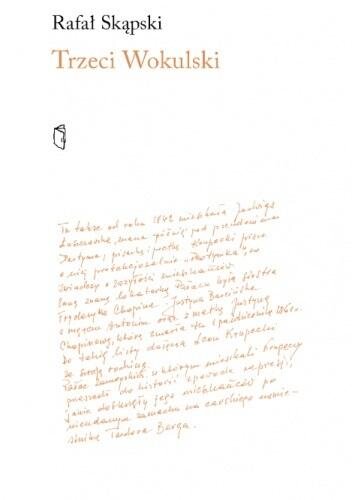 Rafał Skąpski
Trzeci Wokulski
Tu także od roku 1842 mieszkała Jadwiga
Łuszczewska, znana później pod pseudonimem
Deotyma, pisarka i poetka. Krupecki pisze
o niej protekcjonalnie "Deotynka", co
świadczy o zażyłości mieszkańców.
Inną znaną lokatorką Pałacu była siostra
Fryderyka Chopina - Justyna Barcińska
z mężem Antonim oraz z matką Justyną
Chopinową, która zmarła tu 1 października 1861 r.
Do takiej listy dołącza ojciec Krupecki
ze swoją rodziną.
Pałac Zamoyskich, w którym mieszkali Krupeccy
przeszedł do historii z powodu represji,
jakie dotknęły jego mieszkańców po
nieudanym zamachu na carskiego namie-
stnika Teodora Berga.